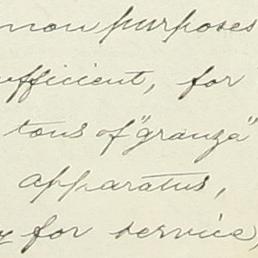 mon purposes
ufficient, for
tons of "granza"
apparatus,
for service,